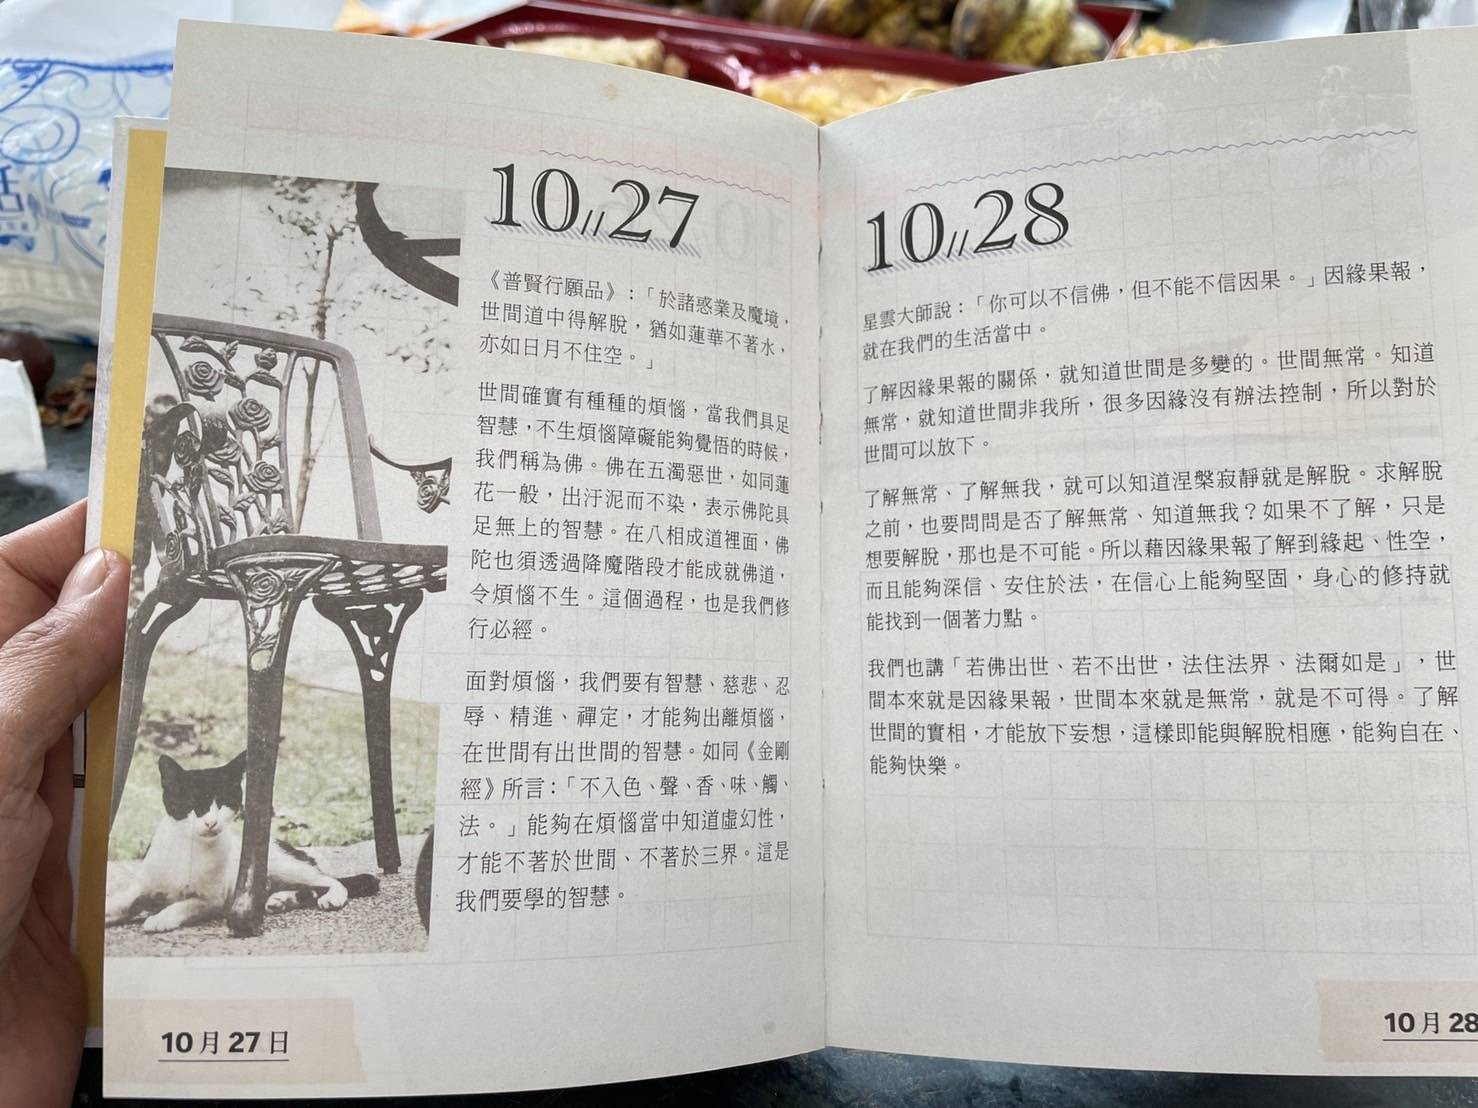 活
10//27
《普賢行願品》：「於諸惑業及魔境，
世間道中得解脫，猶如蓮華不著水，
亦如日月不住空。」
世間確實有種種的煩惱，當我們具足
智慧，不生煩惱障礙能夠覺悟的時候，
我們稱為佛。佛在五濁惡世，如同蓮
花一般，出汙泥而不染，表示佛陀具
足無上的智慧。在八相成道裡面，佛
陀也須透過降魔階段才能成就佛道，
令煩惱不生。這個過程，也是我們修
行必經。
面對煩惱，我們要有智慧、慈悲、忍
辱、精進、禪定，才能夠出離煩惱，
在世間有出世間的智慧。如同《金剛
經》所言：「不入色、聲、香、味、觸、
法。」能夠在煩惱當中知道虛幻性，
才能不著於世間、不著於三界。這是
我們要學的智慧。
10月27日
10//28
星雲大師說：「你可以不信佛，但不能不信因果。」因緣果報，
就在我們的生活當中。
了解因緣果報的關係，就知道世間是多變的。世間無常。知道
無常，就知道世間非我所，很多因緣沒有辦法控制，所以對於
世間可以放下。
了解無常、了解無我，就可以知道涅槃寂靜就是解脫。求解脫
之前，也要問問是否了解無常、知道無我？如果不了解，只是
想要解脫，那也是不可能。所以藉因緣果報了解到緣起、性空，
而且能夠深信、安住於法，在信心上能夠堅固，身心的修持就
能找到一個著力點。
我們也講「若佛出世、若不出世，法住法界、法爾如是」，世
間本來就是因緣果報，世間本來就是無常，就是不可得。了解
世間的實相，才能放下妄想，這樣即能與解脫相應，能夠自在、
能夠快樂。
10月28